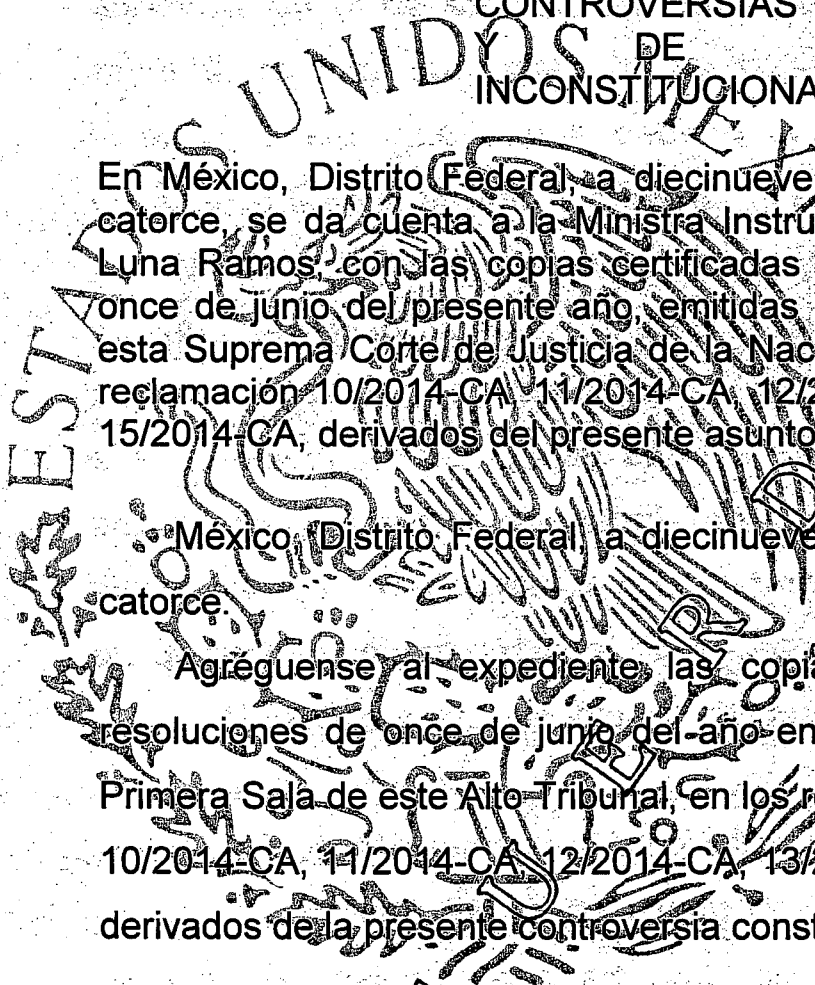 CONTROVERSIAS
Y DE
INCONSTITUCIONA
ESTADOS UNIDOS MEX
En México, Distrito Federal, a diecinueve
catorce, se da cuenta a la Ministra Instru
Luna Ramos, con las copias certificadas
once de junio del presente año, emitidas
esta Suprema Corte de Justicia de la Nac
reclamación 10/2014-CA, 11/2014-CA, 12/2
15/2014-CA, derivados del presente asunto
México, Distrito Federal, a diecinueve
catorce.
Agréguense al expediente las copia
resoluciones de once de junio del año en
Primera Sala de este Alto Tribunal, en los r
10/2014-CA, 11/2014-CA, 12/2014-CA, 13/2
derivados de la presente controversia const